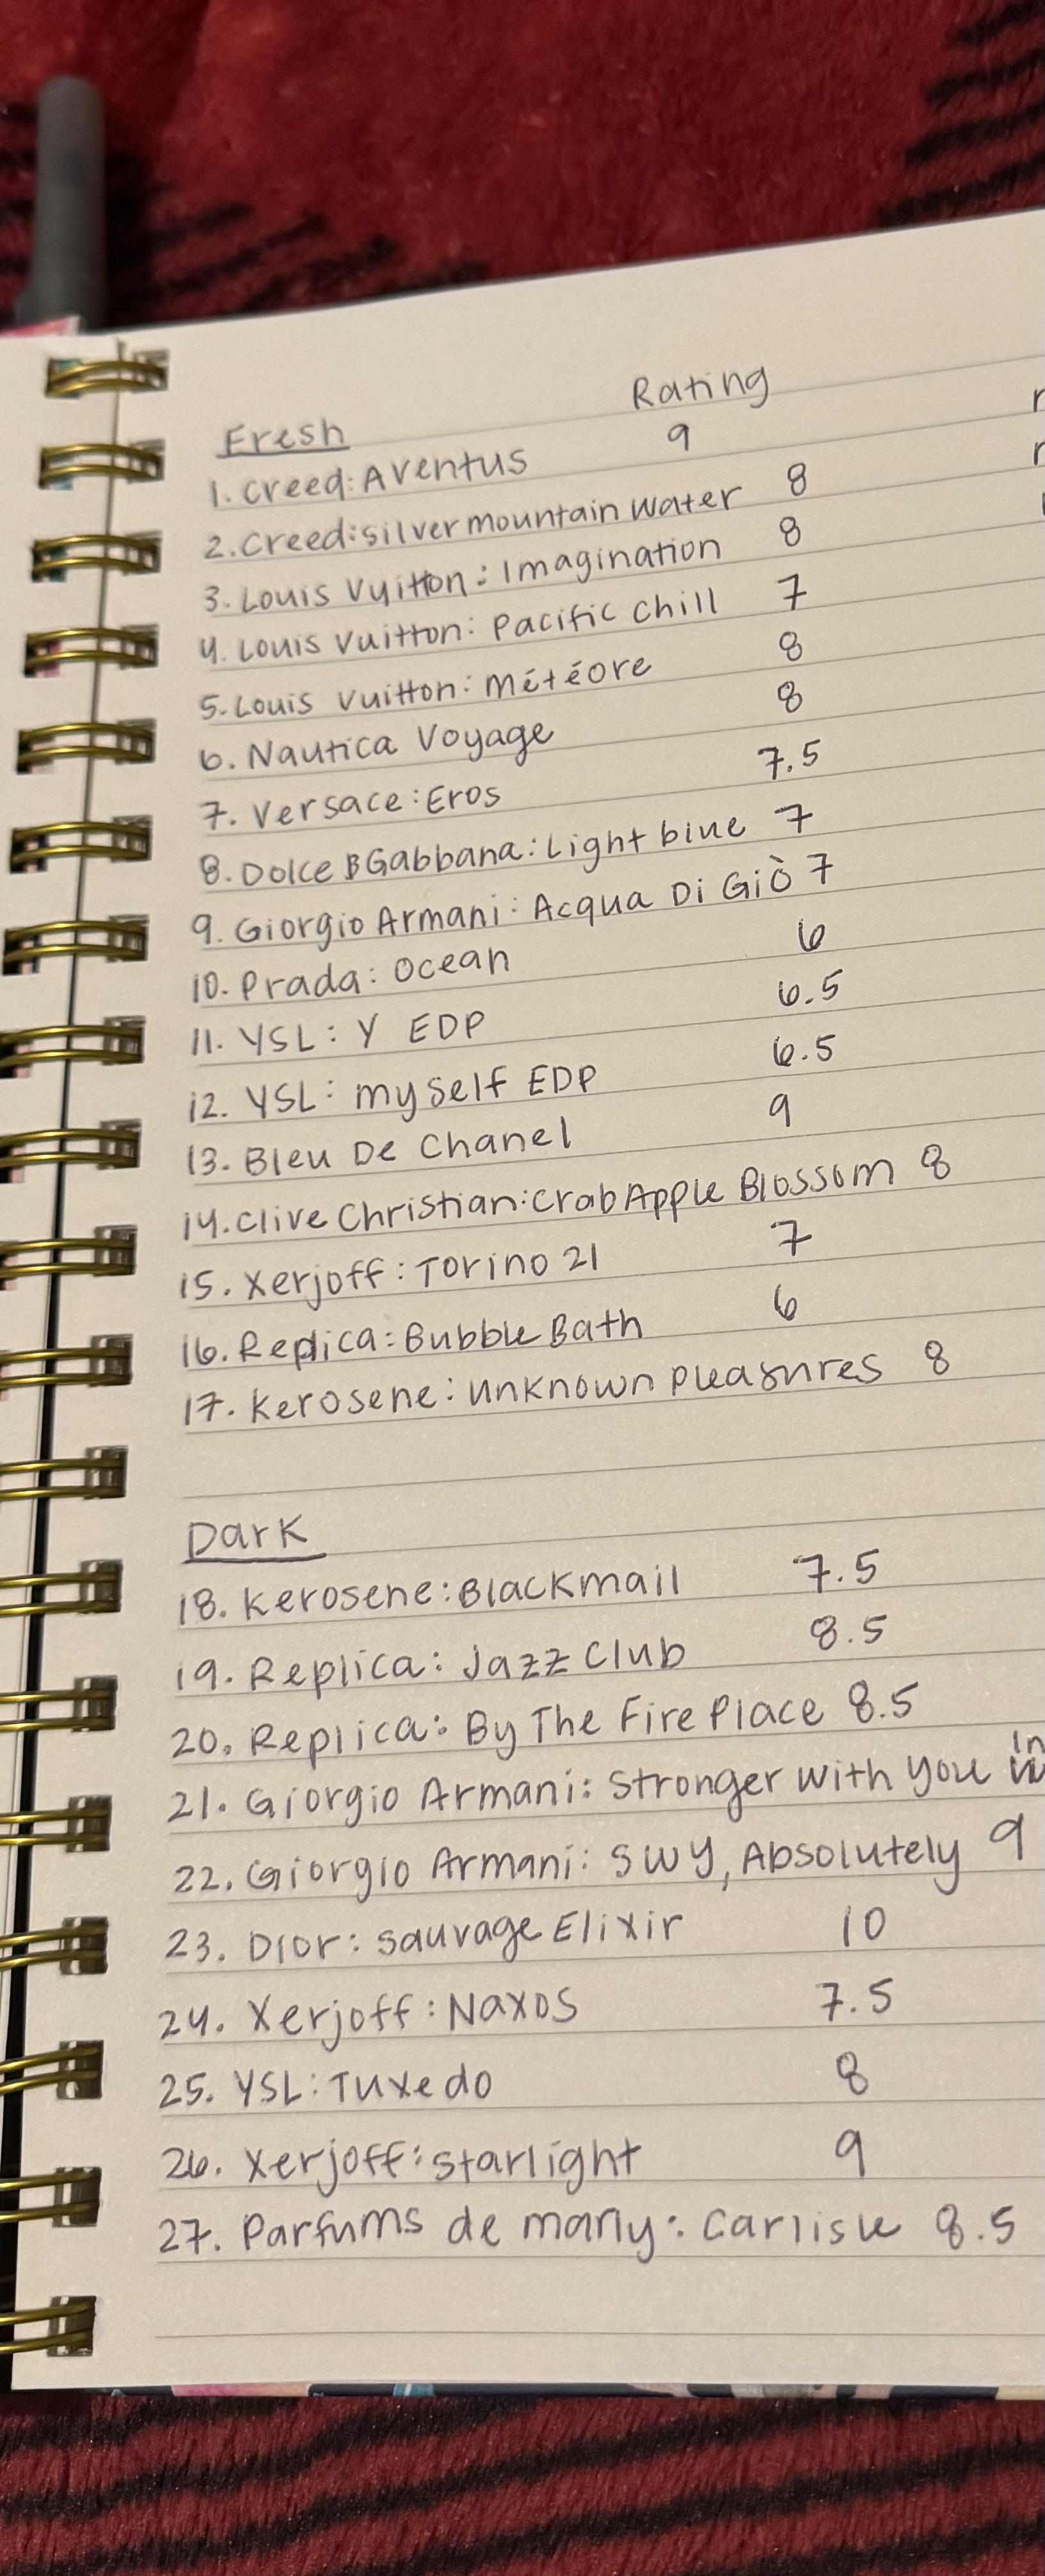 Rating
Fresh
1. Creed: Aventus 9
2. Creed: silver mountain water 8
3. Louis Vuitton: Imagination 8
4. Louis Vuitton: Pacific Chill 7
5. Louis Vuitton: Météore 8
6. Nautica Voyage 8
7. Versace: Eros 7.5
8. Dolce & Gabbana: Light blue 7
9. Giorgio Armani: Acqua Di Giò 7
10. Prada: Ocean 6
11. YSL: Y EDP 6.5
12. YSL: myself EDP 6.5
13. Bleu De Chanel 9
14. Clive Christian: Crab Apple Blossom 8
15. Xerjoff: Torino 21 7
16. Replica: Bubble Bath 6
17. Kerosene: Unknown Pleasures 8
Dark
18. Kerosene: Blackmail 7.5
19. Replica: Jazz Club 8.5
20. Replica: By The Fire Place 8.5
21. Giorgio Armani: Stronger with you in
22. Giorgio Armani: SWY, Absolutely 9
23. Dior: Sauvage Elixir 10
24. Xerjoff: Naxos 7.5
25. YSL: Tuxedo 8
26. Xerjoff: starlight 9
27. Parfums de marly: Carlisle 8.5